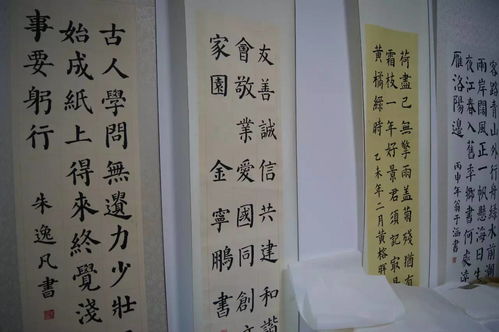 古人學問無遺力少壯
始成紙上得來終覺淺
事要躬行 朱逸凡書
友善誠信共建和諧
會敬業愛國同創文
家園 金寧鵬書
荷盡已無擎雨蓋菊殘猶有
霜枝一年好景君須記
黃橘綠時 乙未年二月黃榕群
客路青山外行舟綠水前潮
兩岸闊風正一帆懸海日生
夜江春入舊年鄉書何處達
雁洛陽邊 丙申年翁子涵書